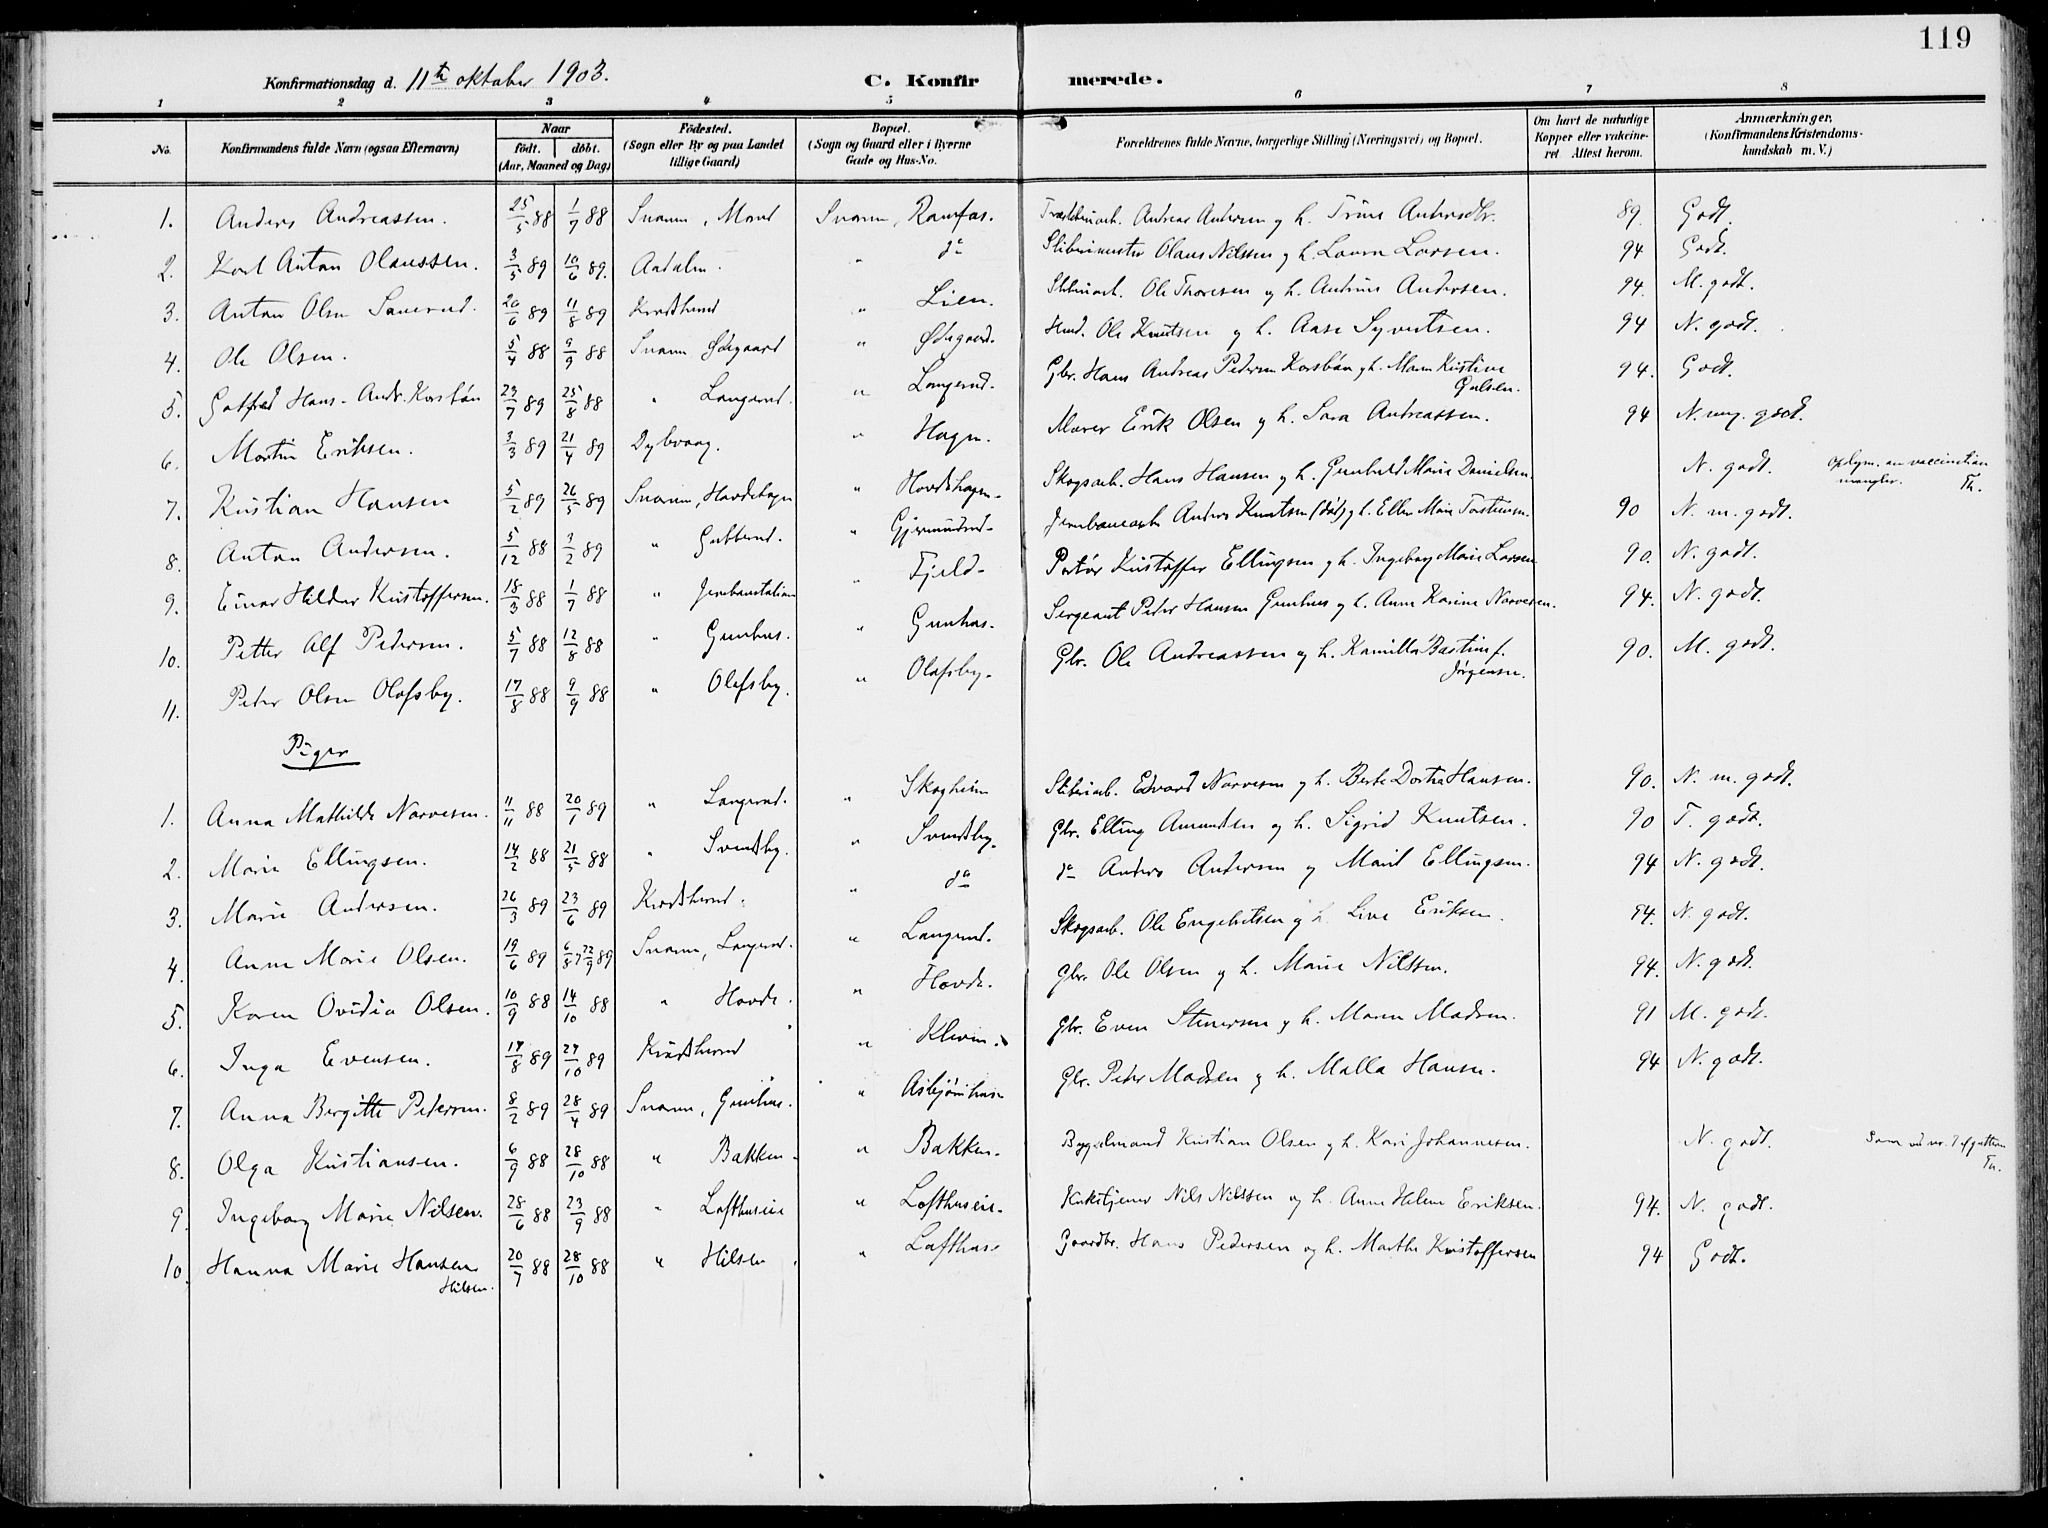 119
Konfirmationsdag d. 11te oktober 1903. C. Konfirmerede.
1 2 3 4 5 6 7 8
No. Konfirmandens fulde Navn (ogsaa Efternavn) Naar födt. döbt. (Aar, Maaned og Dag) Födested. (Sogn eller By og paa Landet tillige Gaard) Bopæl. (Sogn og Gaard eller i Byerne Gade og Hus-No. Forældrenes fulde Navne, borgerlige Stilling (Næringsvei) og Bopæl. Om havt de naturlige Kopper eller vaccineret. Attest herom. Anmærkninger, (Konfirmandens Kristendomskundskab m. V.)
1. Anders Andreassen. 25/5 88 1/7 88 Andreas Andersen og h. Trine 89. Godt.
2. Karl Anton Olaussen. 3/5 89 10/6 89. Aadalen. " do Olaus Nilssen og h. Laura Larsen. 94 Godt.
3. Anton Olsen 20/6 89 11/8 89 " Lien. Ole Thoresen og h. Andrine Andersen. 94. M. godt.
4. Ole Olsen. 5/4 88 9/9 88 Ødegaard " Ødegaard. Ole Knutsen og h. Aase Syvertsen. 94 N. godt.
5. Gotfred Hans-Andr. Korsbøn 23/7 89 25/8 88 " Langerud. " Langerud. Gbr. Hans Andreas Pedersen Korsbøn og h. Maren Kristine Gulsen. 94. Godt.
6. Martin Eriksen. 3/3 89 21/4 89 Dybvaag. " Hagen. Murer Erik Olsen og h. Sara Andreassen. 94 N. mg. godt.
7. Kristian Hansen 5/2 89 26/5 89 Hovdehagen " Hovdehagen. Skogsarb. Hans Hansen og h. Gunhild Marie Danielsen. N. godt. oplysn. om vaccination mangler. Th.
8. Anton Andersen. 5/12 88 3/2 89 " " Gjermundrud. Jernbanearb. Anders Knutsen (død) og h. Ellen Marie 90 N. m. godt.
9. Einar Hilder Kristoffersen. 18/3 88 1/7 88 " Jernbanstation " Fjeld. Portør Kristoffer Ellingsen og h. Ingeborg Marie Larsen 90. N. godt.
10. Petter Alf Pedersen. 5/7 88 12/8 88 " Gunhus. " Gunhus. Sergeant Peder Hansen Gunhus og h. Anna Karine Narvesen. 94. N. godt.
11. Peder Olsen Olafsby. 17/8 88 9/9 88 " Olafsby. " Olafsby. Gbr. Ole Andreassen og h. Kamilla Bastine f. Jørgensen. 90. M. godt.
Piger
1. Anna Mathilde Narvesen. 11/11 88 20/1 89 " Langerud. " Skogheim Sliberiarb. Edvard Narvesen og h. Berte Dortea Hansen. 90. N. m. godt.
2. Marie Ellingsen. 14/2 88 21/5 88 " Svendby. " Svendby. Gbr. Elling Amundsen og h. Sigrid Knutsen. 90 T. godt.
3. Marie Andersen. 26/3 89 23/6 89 Krødsherred. " do do Anders Andersen og Marit Ellingsen. 94 N. godt.
4. Anne Marie Olsen. 19/6 89 6/8 22/9 89 Langerud. " Langerud. Skogsarb. Ole Engebretsen og h. Live Eriksen. 94. N. godt.
5. Karen Ovidia Olsen. 10/9 88 14/10 88 " Hovde. " Hovde. Gbr. Ole Olsen og h. Marie Nilssen. 94. N. godt.
6. Inga Evensen. 14/8 89 27/10 89 Krødsherred " Gbr. Even Stenersen og h. Maren Madsen. 91 M. godt.
7. Anna Birgitte Pedersen. 8/2 89 28/4 89 Gunhus. " Asbjørnhus. Gbr. Peter Madsen og h. Malla Hansen. 94 N. godt.
8. Olga Kristiansen. 6/9 88 28/10 88 " Bakken. " Bakken. Bygselmand Kristian Olsen og h. Kari Johannesen. N. godt. Som ved nr. 7 af gutterne Th.
9. Ingeborg Marie Nilsen. 28/6 88 23/9 88 " Lofthuseie " Lofthuseie. Kirketjener Nils Nilssen og h. Anne Helene Eriksen. 94. N. godt.
10. Hanna Marie Hansen Hilsen. 20/7 88 28/10 88 " Hilsen " Lofthus. Gaardbr. Hans Pedersen og h. Marthe Kristoffersen 94 Godt.